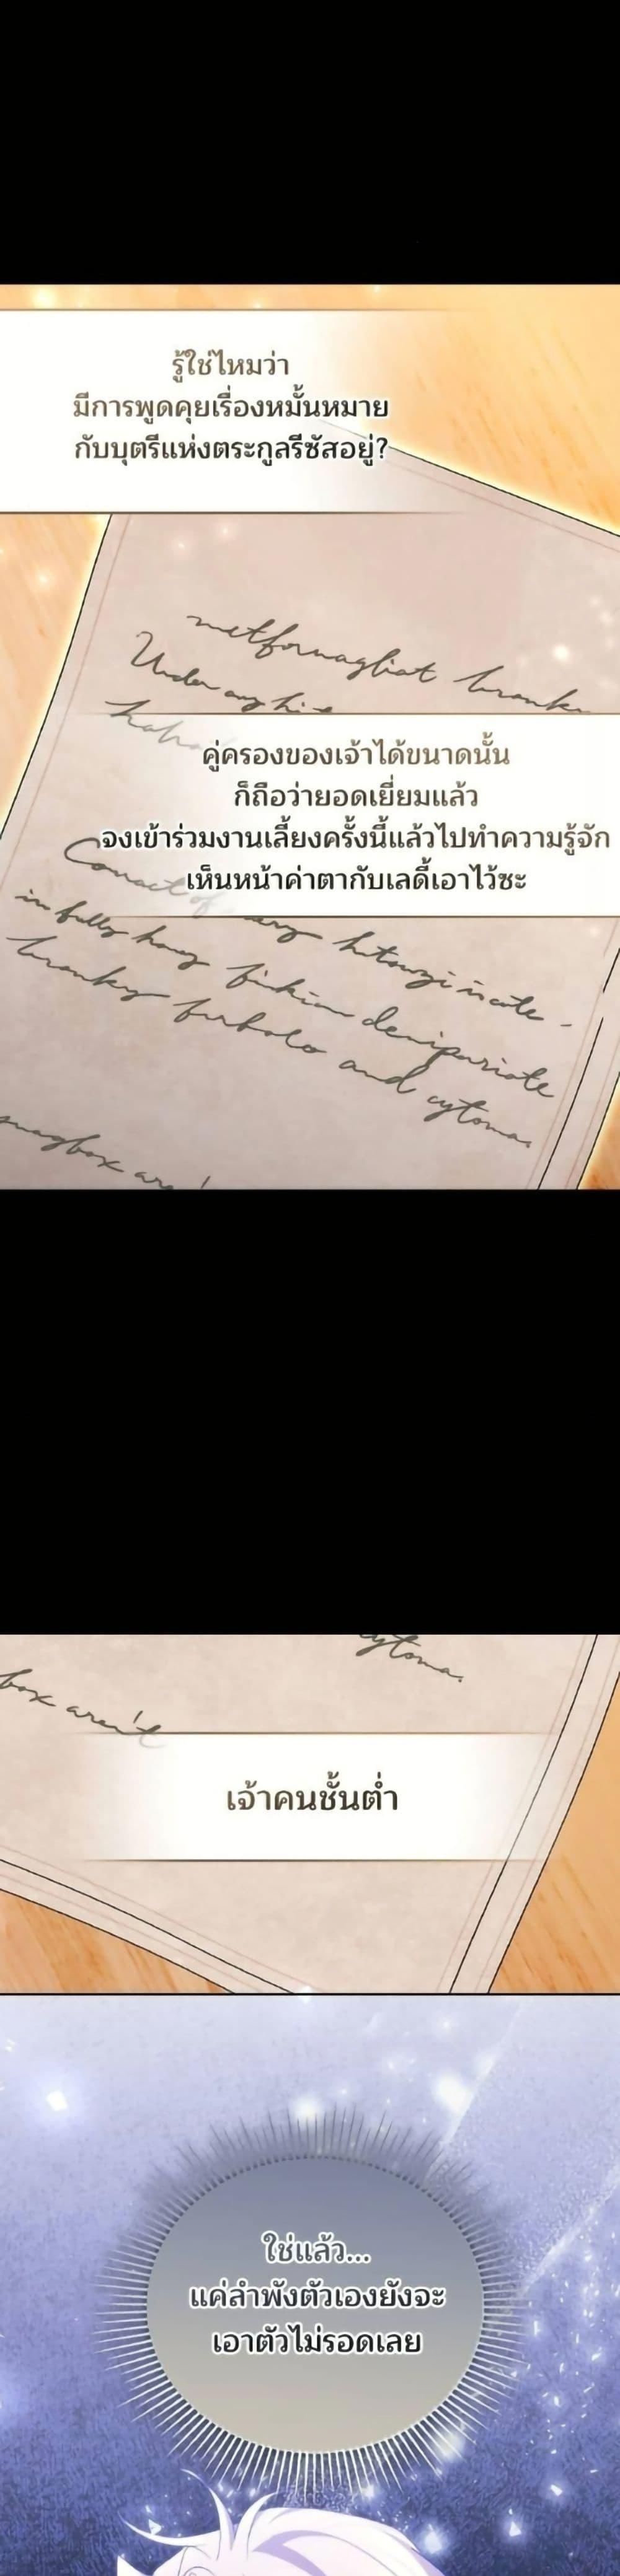 รู้ใช่ไหมว่า
มีการพูดคุยเรื่องหมั้นหมาย
กับบุตรีแห่งตระกูลรีซัสอยู่?
Under any hi
คู่ครองของเจ้าได้ขนาดนั้น
ก็ถือว่ายอดเยี่ยมแล้ว
จงเข้าร่วมงานเลี้ยงครั้งนี้แล้วไปทำความรู้จัก
เห็นหน้าค่าตากับเลดี้เอาไว้ซะ
in fully
and cytoma.
box aren't
cytoma.
box aren't
เจ้าคนชั้นต่ำ
ใช่แล้ว...
แค่ลำพังตัวเองยังจะ
เอาตัวไม่รอดเลย